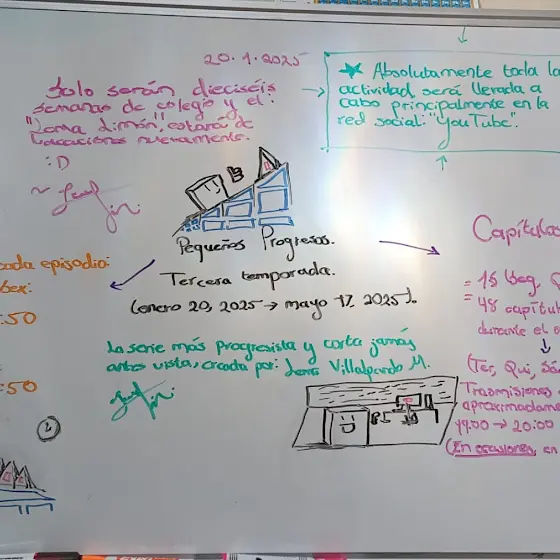 20.1.2025
Solo serán dieciséis
semanas de colegio y el:
"Lema Limón", estará de
vacaciones nuevamente.
:D
★ Absolutamente toda la
actividad será llevada a
cabo principalmente en la
red social: "YouTube".
Pequeños Progresos.
Tercera temporada.
(enero 20, 2025 → mayo 17, 2025).
La serie más progresista y corta jamás
antes vista, creada por: Villalpando M.
cada episodio:
:50
:50
2
Capítulos
= 15 seg.
= 48 capítu
durante el
(Ter, Qui, Sá
Trasmisiones
aproximadame
19:00 → 20:00
(En ocasiones, en